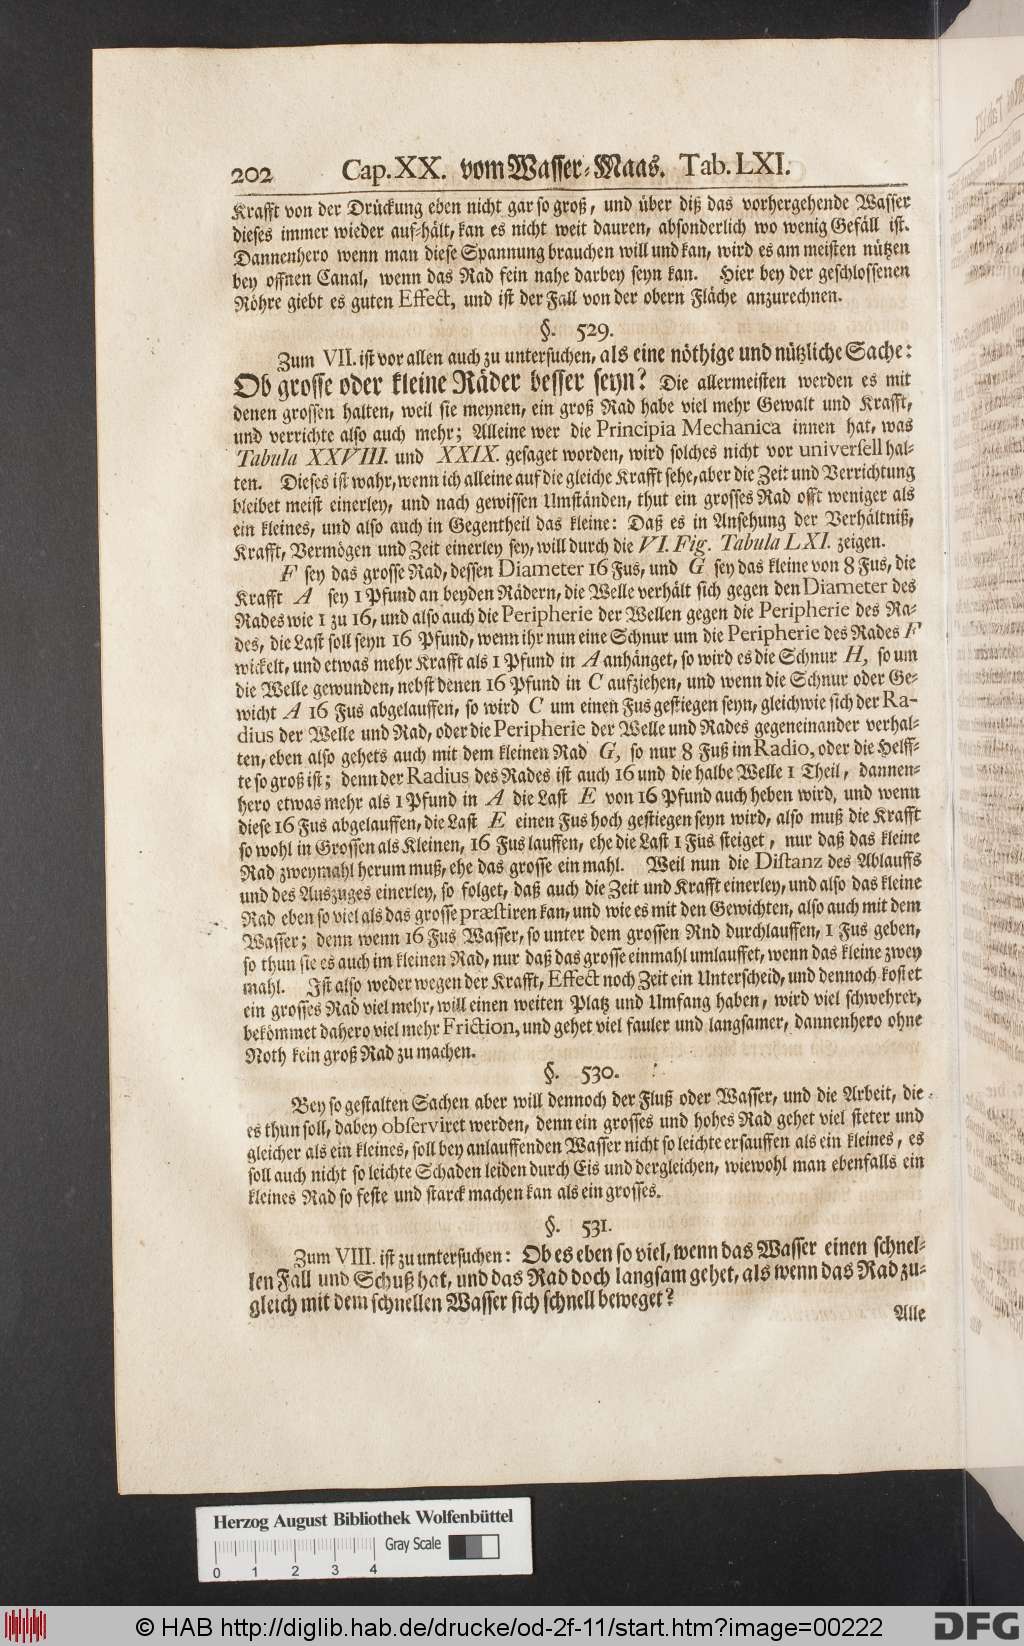 202 Cap. XX. vom Wasser-Maas. Tab. LXI.
Krafft von der Drückung eben nicht gar so groß, und über diß das vorhergehende Wasser
dieses immer wieder auf-hält, kan es nicht weit dauren, absonderlich wo wenig Gefäll ist.
Dannenhero wenn man diese Spannung brauchen will und kan, wird es am meisten nützen
bey offnen Canal, wenn das Rad fein nahe darbey seyn kan. Hier bey der geschlossenen
Röhre giebt es guten Effect, und ist der Fall von der obern Fläche anzurechnen.
§. 529.
Zum VII. ist vor allen auch zu untersuchen, als eine nöthige und nützliche Sache:
Ob grosse oder kleine Räder besser seyn? Die allermeisten werden es mit
denen grossen halten, weil sie meynen, ein groß Rad habe viel mehr Gewalt und Krafft,
und verrichte also auch mehr; Alleine wer die Principia Mechanica innen hat, was
Tabula XXVIII. und XXIX. gesaget worden, wird solches nicht vor universell hal-
ten. Dieses ist wahr, wenn ich alleine auf die gleiche Krafft sehe, aber die Zeit und Verrichtung
bleibet meist einerley, und nach gewissen Umständen, thut ein grosses Rad offt weniger als
ein kleines, und also auch in Gegentheil das kleine: Daß es in Ansehung der Verhältniß,
Krafft, Vermögen und Zeit einerley sey, will durch die VI. Fig. Tabula LXI. zeigen.
F sey das grosse Rad, dessen Diameter 16 Fus, und G sey das kleine von 8 Fus, die
Krafft A sey 1 Pfund an beyden Rädern, die Welle verhält sich gegen den Diameter des
Rades wie 1 zu 16, und also auch die Peripherie der Wellen gegen die Peripherie des Ra-
des, die Last soll seyn 16 Pfund, wenn ihr nun eine Schnur um die Peripherie des Rades F
wickelt, und etwas mehr Krafft als 1 Pfund in A anhänget, so wird es die Schnur H, so um
die Welle gewunden, nebst denen 16 Pfund in C aufziehen, und wenn die Schnur oder Ge-
wicht A 16 Fus abgelauffen, so wird C um einen Fus gestiegen seyn, gleichwie sich der Ra-
dius der Welle und Rad, oder die Peripherie der Welle und Rades gegeneinander verhal-
ten, eben also gehets auch mit dem kleinen Rad G, so nur 8 Fuß im Radio, oder die Helff-
te so groß ist; denn der Radius des Rades ist auch 16 und die halbe Welle 1 Theil, dannen-
hero etwas mehr als 1 Pfund in A die Last E von 16 Pfund auch heben wird, und wenn
diese 16 Fus abgelauffen, die Last E einen Fus hoch gestiegen seyn wird, also muß die Krafft
so wohl in Grossen als Kleinen, 16 Fus lauffen, ehe die Last 1 Fus steiget, nur daß das kleine
Rad zweymahl herum muß, ehe das grosse ein mahl. Weil nun die Distanz des Ablauffs
und des Auszuges einerley, so folget, daß auch die Zeit und Krafft einerley, und also das kleine
Rad eben so viel als das grosse præstiren kan, und wie es mit den Gewichten, also auch mit dem
Wasser; denn wenn 16 Fus Wasser, so unter dem grossen Rnd durchlauffen, 1 Fus geben,
so thun sie es auch im kleinen Rad, nur daß das grosse einmahl umlauffet, wenn das kleine zwey
mahl. Ist also weder wegen der Krafft, Effect noch Zeit ein Unterscheid, und dennoch kostet
ein grosses Rad viel mehr, will einen weiten Platz und Umfang haben, wird viel schwehrer,
bekömmet dahero viel mehr Friction, und gehet viel fauler und langsamer, dannenhero ohne
Noth kein groß Rad zu machen.
§. 530.
Bey so gestalten Sachen aber will dennoch der Fluß oder Wasser, und die Arbeit, die
es thun soll, dabey observiret werden, denn ein grosses und hohes Rad gehet viel steter und
gleicher als ein kleines, soll bey anlauffenden Wasser nicht so leichte ersauffen als ein kleines, es
soll auch nicht so leichte Schaden leiden durch Eis und dergleichen, wiewohl man ebenfalls ein
kleines Rad so feste und starck machen kan als ein grosses.
§. 531.
Zum VIII. ist zu untersuchen: Ob es eben so viel, wenn das Wasser einen schnel-
len Fall und Schuß hat, und das Rad doch langsam gehet, als wenn das Rad zu-
gleich mit dem schnellen Wasser sich schnell beweget?
Alle
Herzog August Bibliothek Wolfenbüttel
Gray Scale
0 1 2 3 4
© HAB http://diglib.hab.de/drucke/od-2f-11/start.htm?image=00222
DFG